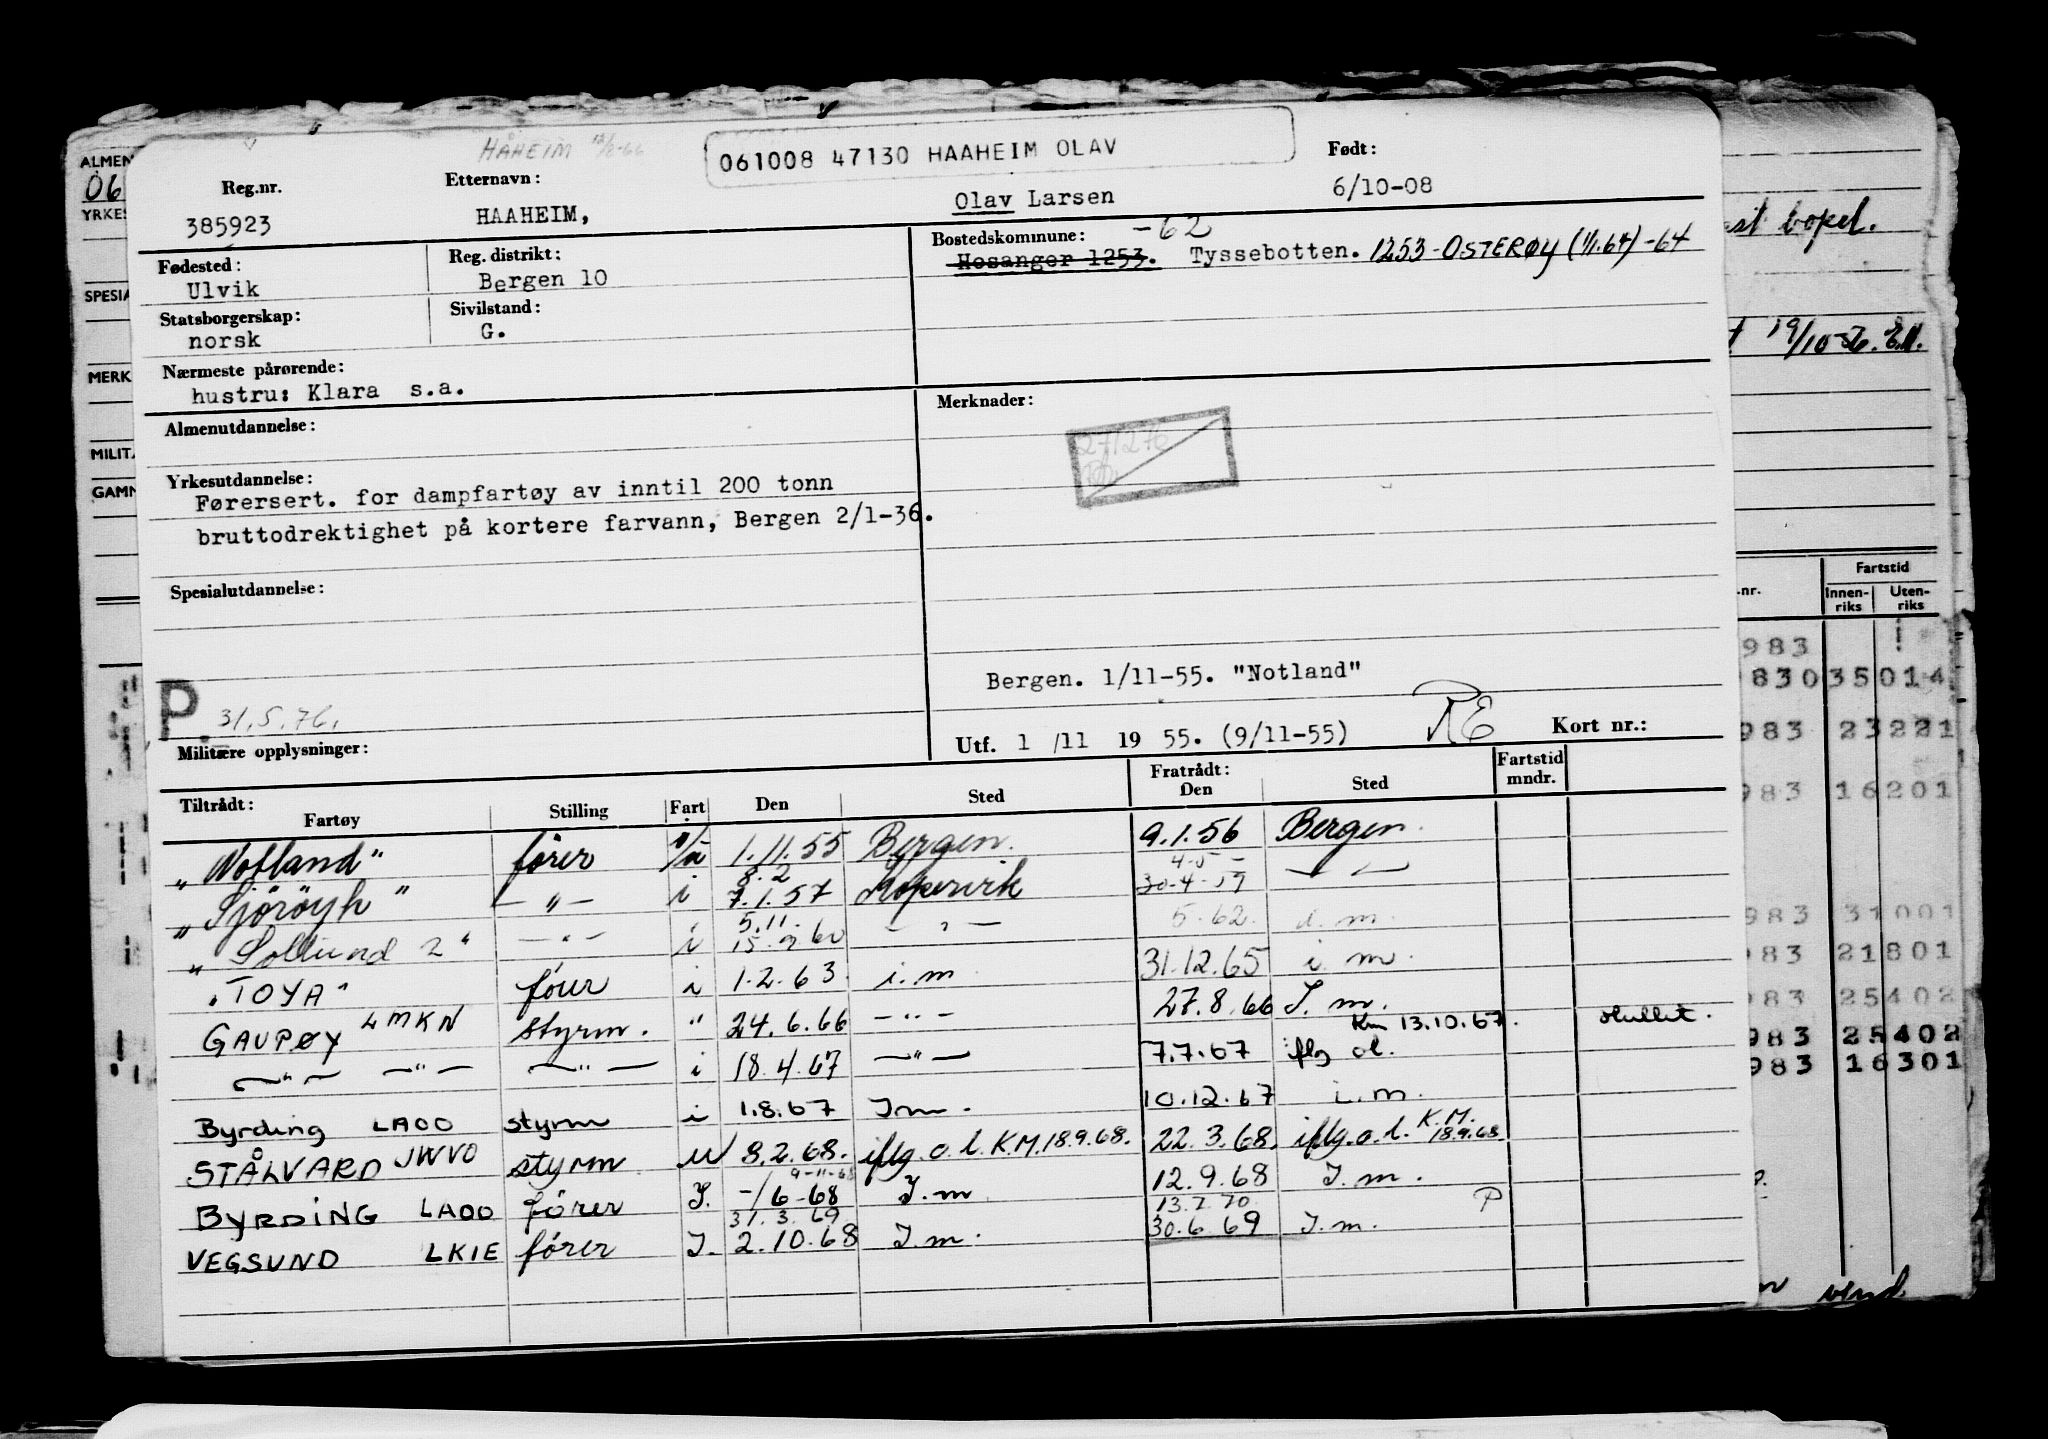 HÅHEIM
061008 47130 HAAHEIM OLAV
Reg.nr. Etternavn: Født:
385923 HAAHEIM, Olav Larsen 6/10-08
Fødested: Reg. distrikt: Bostedskommune: -62
Ulvik Bergen 10 Hosanger 1253. Tyssebotten. 1253-OSTERØY (1/1.64) -64
Statsborgerskap: Sivilstand:
norsk G.
Nærmeste pårørende:
hustru: Klara s.a.
Almenutdannelse: Merknader:
271276
Yrkesutdannelse:
Førersert. for dampfartøy av inntil 200 tonn
bruttodrektighet på kortere farvann, Bergen 2/1-36.
Spesialutdannelse:
Bergen. 1/11-55. "Notland"
P. 31.5.76.
Utf. 1 /11 19 55. (9/11-55) RE Kort nr.:
Militære opplysninger:
Tiltrådt: Fratrådt: Fartstid mndr.
Fartøy Stilling Fart Den Sted Den Sted
"Notland" fører 1.11.55 Bergen. 9.1.56 Bergen.
8.2 4-5-
"Sjørøyh" -"- i 7.1.57 Kopervik 30-4-59 -"-
5.11.
"Sollund 2" -"- i 15.9.60 -"- 5.62. i.m.
"TOYA" fører i 1.2.63. i.m 31.12.65 i.m.
GAUPØY LMKN styrm. " 24.6.66 -"- 27.8.66 I.m.
Km 13.10.67.
-"- -"- -"- i 18.4.67 -"- 7.7.67 iflg ol.
Byrding LAOO styrm i 1.8.67 Im. 10.12.67 i.m.
STÅLVARD JWVO styrm U 8.2.68. iflg.o.l. K.M.18.9.68. 22.3.68. iflg.o.l. K.M. 18.9.68.
9-11-68
BYRDING LAOO fører I. -/6-68 I.m 12.9.68 I.m.
31.3.69 13.7.70. P
VEGSUND LKIE fører I. 2.10.68 I.m. 30.6.69 I.m.
ALMEN
06
YRKES
SPESIA
MERK
MILIT
GAMM
bopel.
19/10-
nr. Fartstid
Innen-riks Uten-riks
983
8303 5014
983 23221
983 16201
983 31001
983 21801
983 25402
983 25402
983 16301